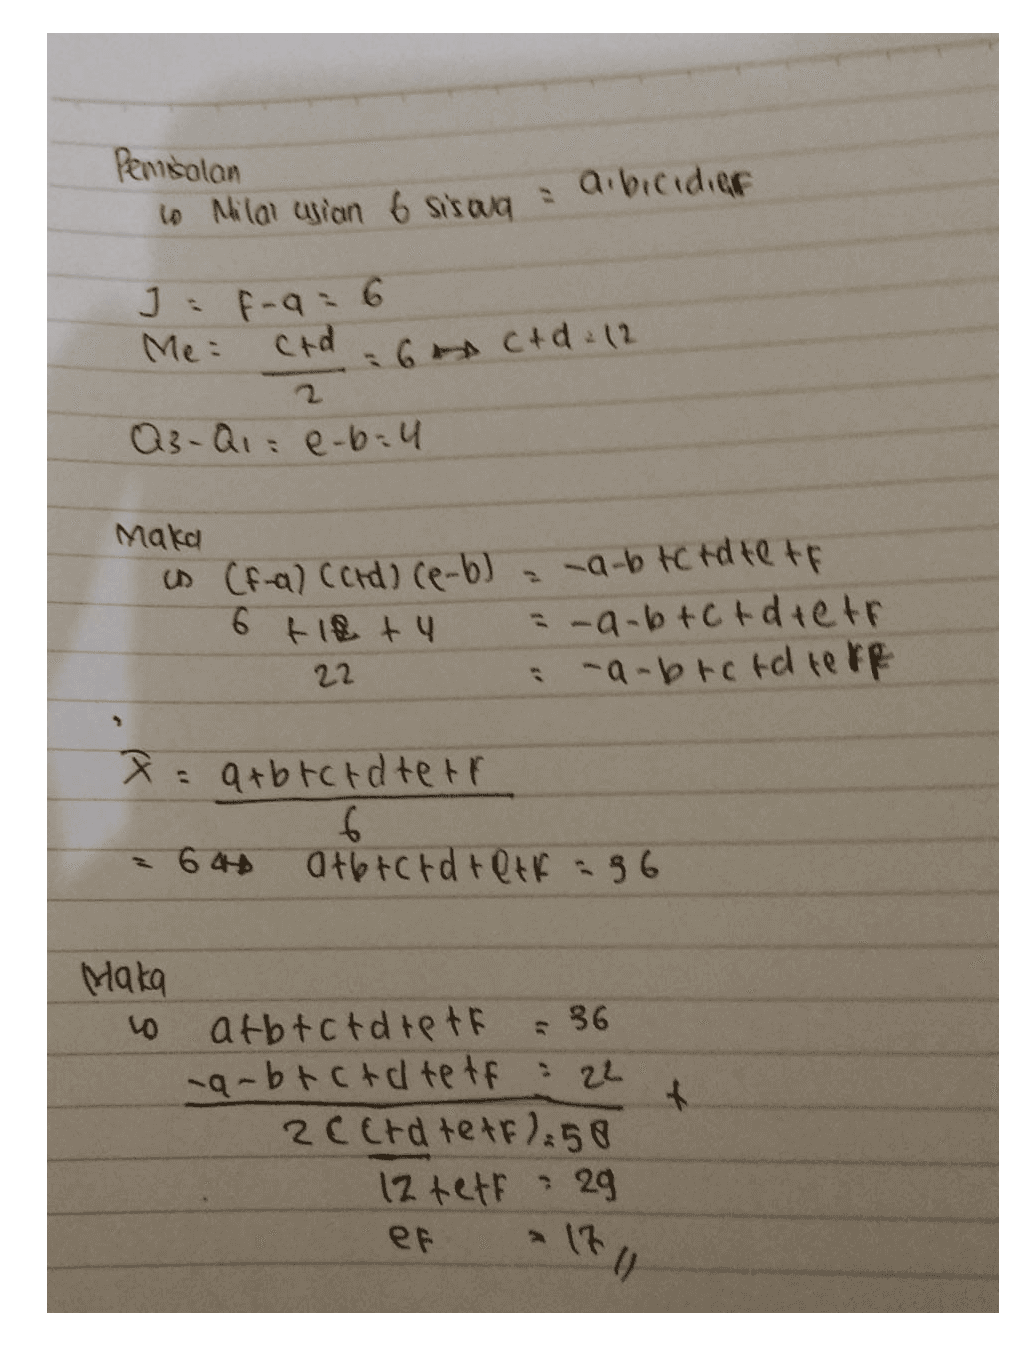 Pemisalan
↳ Nilai usian 6 sisava = a,b,c,d,e,F
J = F-a = 6
Me = c+d/2 = 6 → c+d = 12
Q3-Q1 = e-b = 4
Maka
↳ (F-a) (c+d) (e-b) = -a-b+c+d+e+F
6 + 12 + 4 = -a-b+c+d+e+F
22 = -a-b+c+d+e+F
x̄ = a+b+c+d+e+F/6
= 6 ↔ a+b+c+d+e+F = 36
Maka
↳ a+b+c+d+e+F = 36
-a-b+c+d+e+F = 22 +
2(c+d+e+F) = 58
12+e+F = 29
eF = 17 //